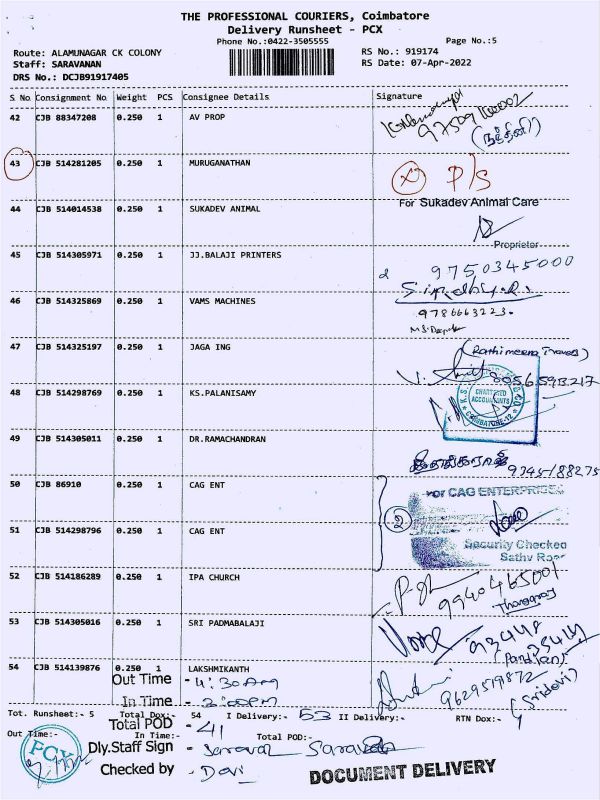 THE PROFESSIONAL COURIERS, Coimbatore
Delivery Runsheet - PCX
Phone No.:0422-3505555 Page No.:5
Route: ALAMUNAGAR CK COLONY RS No.: 919174
Staff: SARAVANAN RS Date: 07-Apr-2022
DRS No.: DCJB91917405
S No Consignment No Weight PCS Consignee Details Signature
42 CJB 88347208 0.250 1 AV PROP
(நந்தினி)
43 CJB 514281205 0.250 1 MURUGANATHAN X P/S
44 CJB 514014538 0.250 1 SUKADEV ANIMAL For Sukadev Animal Care
Proprietor
45 CJB 514305971 0.250 1 JJ.BALAJI PRINTERS 9750345000
46 CJB 514325869 0.250 1 VAMS MACHINES
9786663223.
47 CJB 514325197 0.250 1 JAGA ING (Rathimeena Travels)
8056593217
48 CJB 514298769 0.250 1 KS.PALANISAMY CHARTERED ACCOUNTANTS
COIMBATORE-12
49 CJB 514305011 0.250 1 DR.RAMACHANDRAN
9745188275
50 CJB 86910 0.250 1 CAG ENT For CAG ENTERPRISES
2
51 CJB 514298796 0.250 1 CAG ENT Security Checked
52 CJB 514186289 0.250 1 IPA CHURCH
9940465001
Thangaraj
53 CJB 514305016 0.250 1 SRI PADMABALAJI
54 CJB 514139876 0.250 1 LAKSHMIKANTH
9629579872
(Sridevi)
Out Time - 4:30AM
In Time - 2:00PM
Tot. Runsheet:- 5 Total Dox:- 54 I Delivery:- 53 II Delivery:- RTN Dox:-
Total POD - 41
Out Time:- In Time:- Total POD:-
PCX
Dly.Staff Sign - Saravan
Checked by - Devi
DOCUMENT DELIVERY